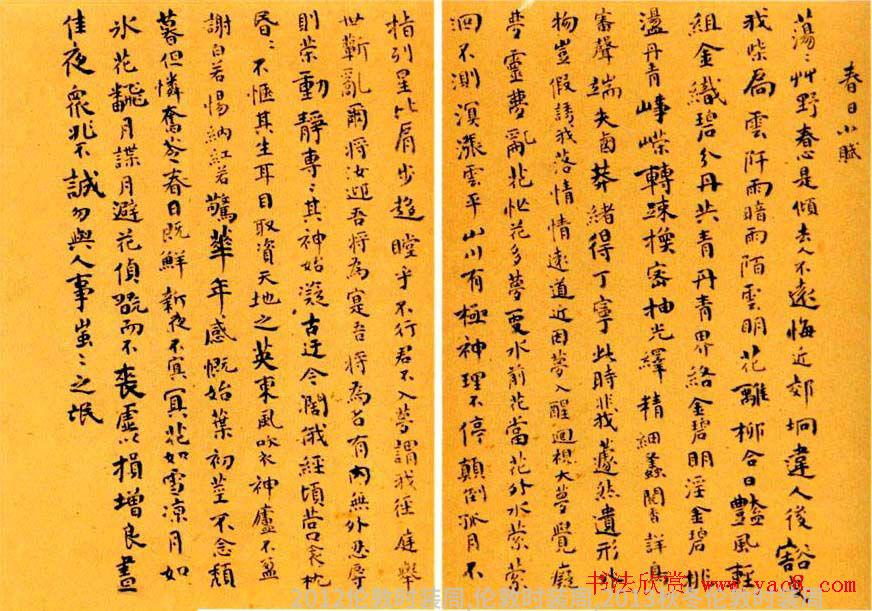 春日小賦
蕩々艸野春心是傾去人不遠悔近郊坰違人後豁
我柴扃雲阡雨暗雨陌雲明花離柳合日豔風輕
組金織碧分丹共青丹青界絡金碧明淫金碧排
盪丹青峰嶸轉疎換密抽光繹精細蠡聞香詳鳥
審聲端夫鹵莽緒得丁寧此時我蘧然遺形外
物豈假誘我落情情遠道近因夢入醒迴視大夢覺癡
夢靈夢亂花花多夢夏水前花當花外水縈縈
洄不測溟漲雲平山川有極神理不停顛倒孤月不
指列星比肩步趨瞠乎不行君不入夢謂我徑庭舉
世蘄亂爾將汝迎吾將為寔吾將為名有內無外忍辱
則榮動靜專々其神始凝古迂今闊俄經頃營衾枕
昏々不愜其生耳目取資天地之英東風吹衣神廬不盈
謝白若惕納紅若驚華年感慨始葉初莖不念頹
暮但憐奮苓春日既鮮新夜不寘冥花如雪涼月如
氷花飜月諜月避花偵號而不喪虛以損增良晝
佳夜眾兆不誠勿與人事蚩々之氓
书法欣赏 www.yac8.com
2012伦敦时装周,伦敦时装周,2013秋冬伦敦时装周